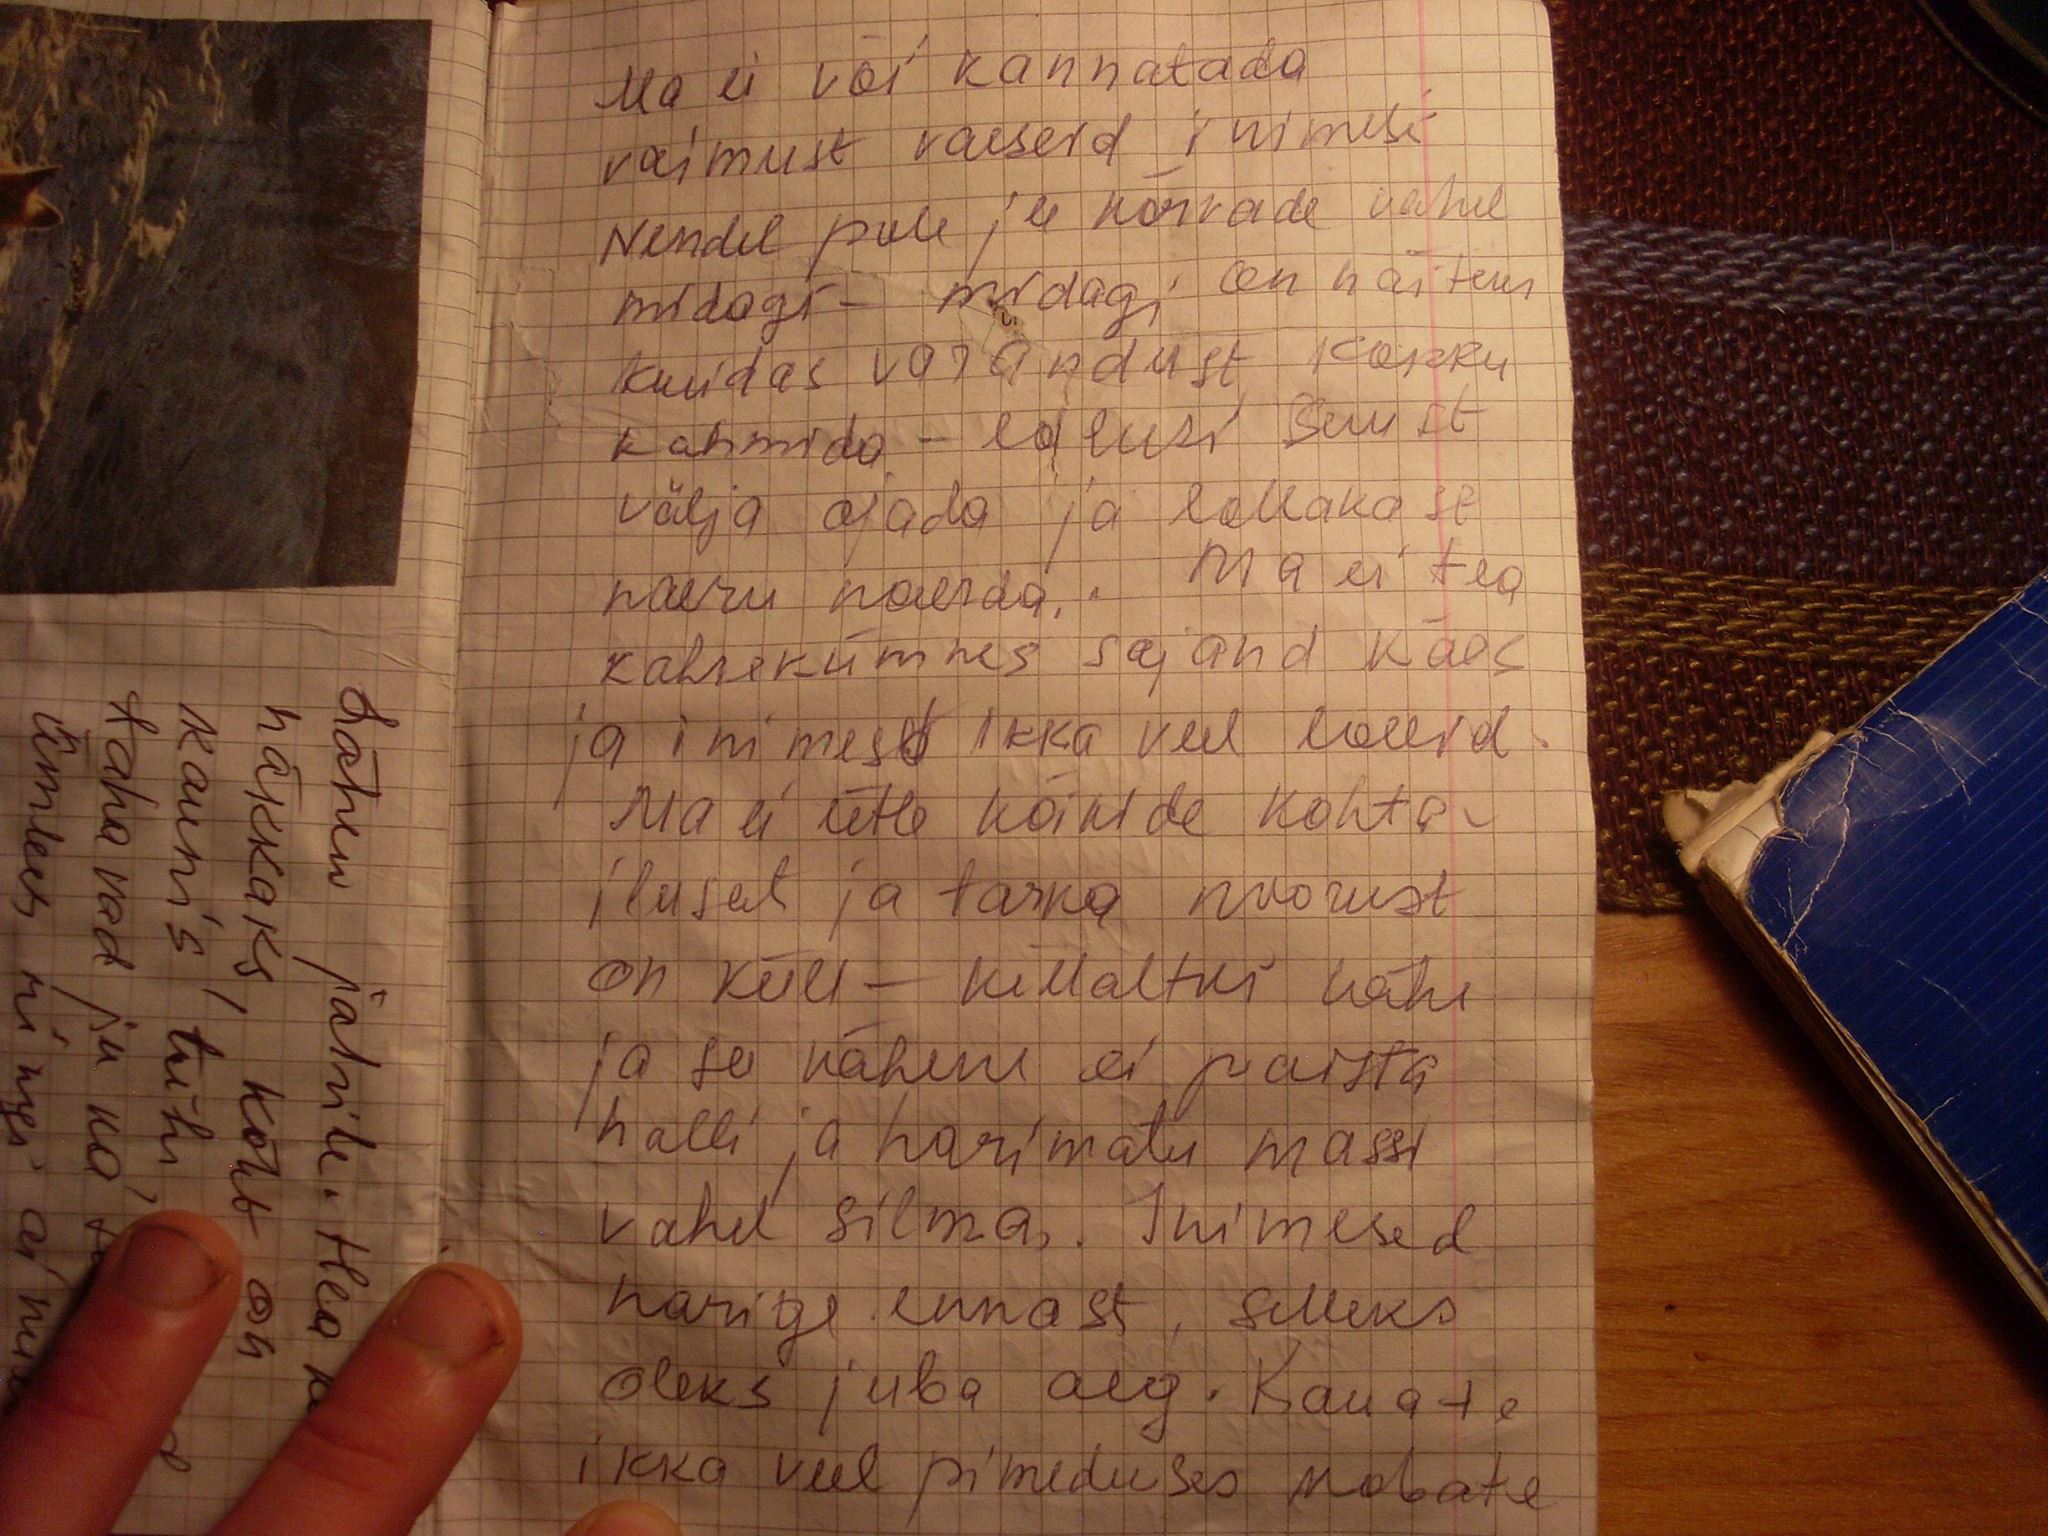 Ma ei või kannatada
vaimust vaeseid inimesi
Nendel pole ju kõrvade vahel
midagi - midagi on näiteks
kuidas varandust kokku
kahmida - lolluzi suust
välja ajada ja lollakast
naeru naerda. Ma ei tea
kahekümnes sajand käes
ja inimesd ikka veel lollid.
Ma ei ütle kõikide kohta
ilusat ja tarka noorust
on küll - küllaltki vähe
ja see vähene ei paista
halli ja harimatu massi
vahel silma. Inimesed
harige ennast, selleks
oleks juba aeg. Kaua te
ikka veel pimeduses kobate
Lähen jahile. Hea
näkkaks, kõht on
kaunis tühi
Kahavad ju ka
Ümber, mingi